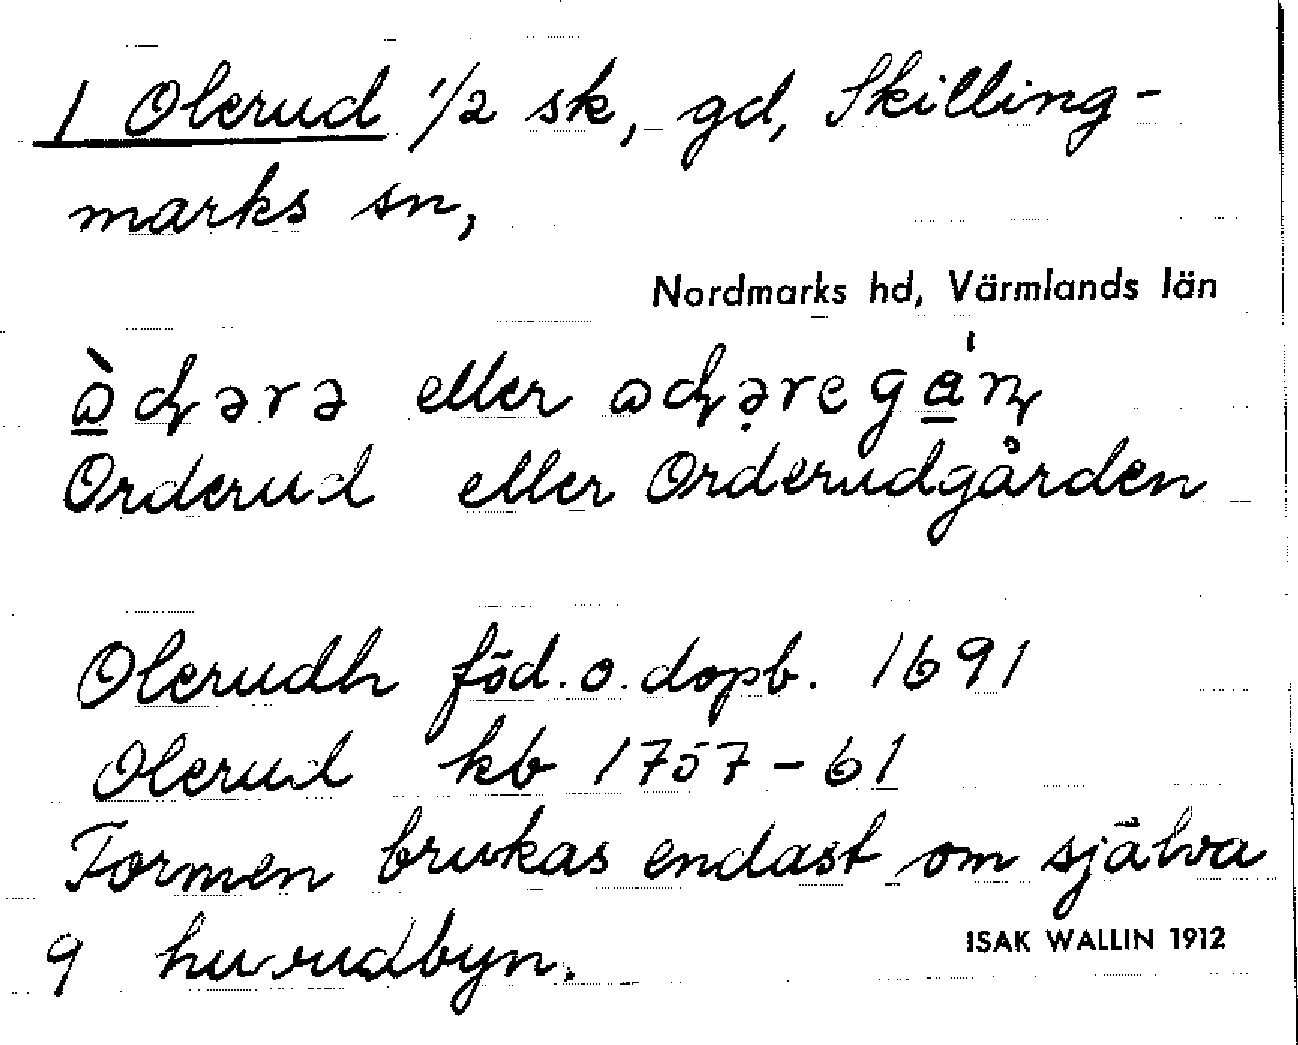 1 Olerud 1/2 sk, gd, Skilling-
marks sn,
Nordmarks hd, Värmlands län
eller
Orderud eller Orderudgården
Olerudh föd. o. dopb. 1691
Olerud kb 1757-61
Formen brukas endast om själva
9 huvudbyn.
ISAK WALLIN 1912